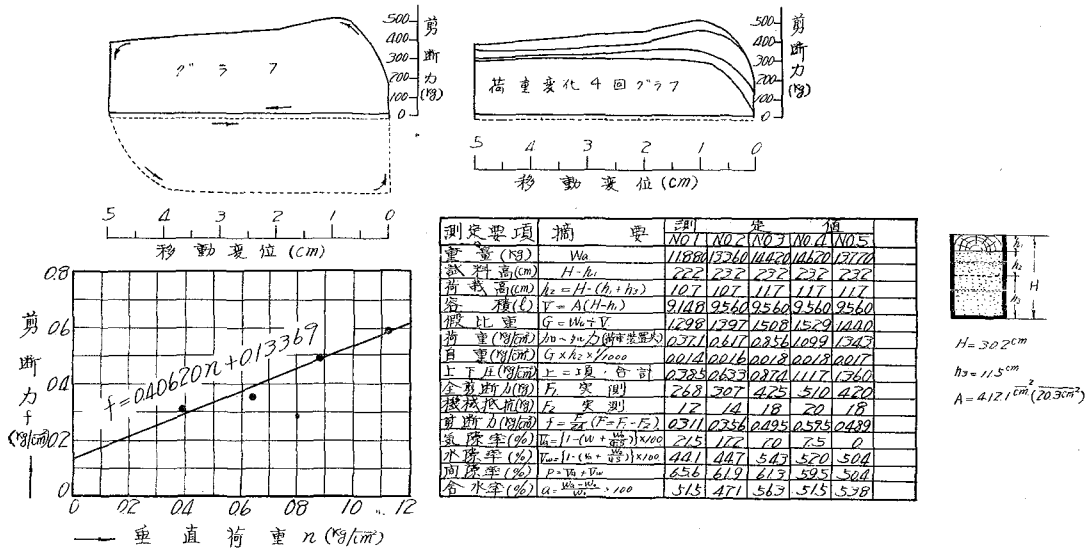 グラフ
500
400
300
200
100
0
剪断力(Kg)
5 4 3 2 1 0
移動変位(cm)
荷重変化4回グラフ
500
400
300
200
100
0
剪断力(Kg)
5 4 3 2 1 0
移動変位(cm)
0.8
0.6
0.4
0.2
0
剪断力f(Kg/cm²)
f=0.40620n+0.13369
0 0.2 0.4 0.6 0.8 1.0 1.2
垂直荷重n(Kg/cm²)
測定要項 摘要 測定値
NO.1 NO.2 NO.3 NO.4 NO.5
重量(Kg) Wa 11.880 13.360 14.420 14.620 13.770
試料高(cm) H-h₁ 22.2 23.2 23.2 23.2 23.2
荷載高(cm) h₂=H-(h₁+h₃) 10.7 10.7 11.7 11.7 11.7
容積(ℓ) V=A(H-h₁) 9.148 9.560 9.560 9.560 9.560
假比重 G=Wa÷V 1.298 1.397 1.508 1.529 1.440
荷重(Kg/cm²) (荷重装置火) 0.371 0.617 0.856 1.099 1.343
自重(Kg/cm²) G×h₂×1/1000 0.014 0.016 0.018 0.018 0.017
上下圧(Kg/cm²) 上=2項ノ合計 0.385 0.633 0.874 1.117 1.360
全剪断力(Kg) F₁ 実測 268 307 425 510 420
機械抵抗(Kg) F₂ 実測 12 14 18 20 18
剪断力(Kg/cm²) (F=F₁-F₂) 0.311 0.356 0.495 0.595 0.489
気隙率(%) ×100 21.5 17.2 7.0 7.5 0
水隙率(%) ×100 44.1 44.7 54.3 52.0 50.4
間隙率(%) P=Va+Vw 65.6 61.9 61.3 59.5 50.4
含水率(%) ×100 51.5 47.1 56.3 51.5 53.8
h₁
h₂
h₃
H
H=30.2cm
h₃=11.5cm
A=412.1cm² (20.3cm²)